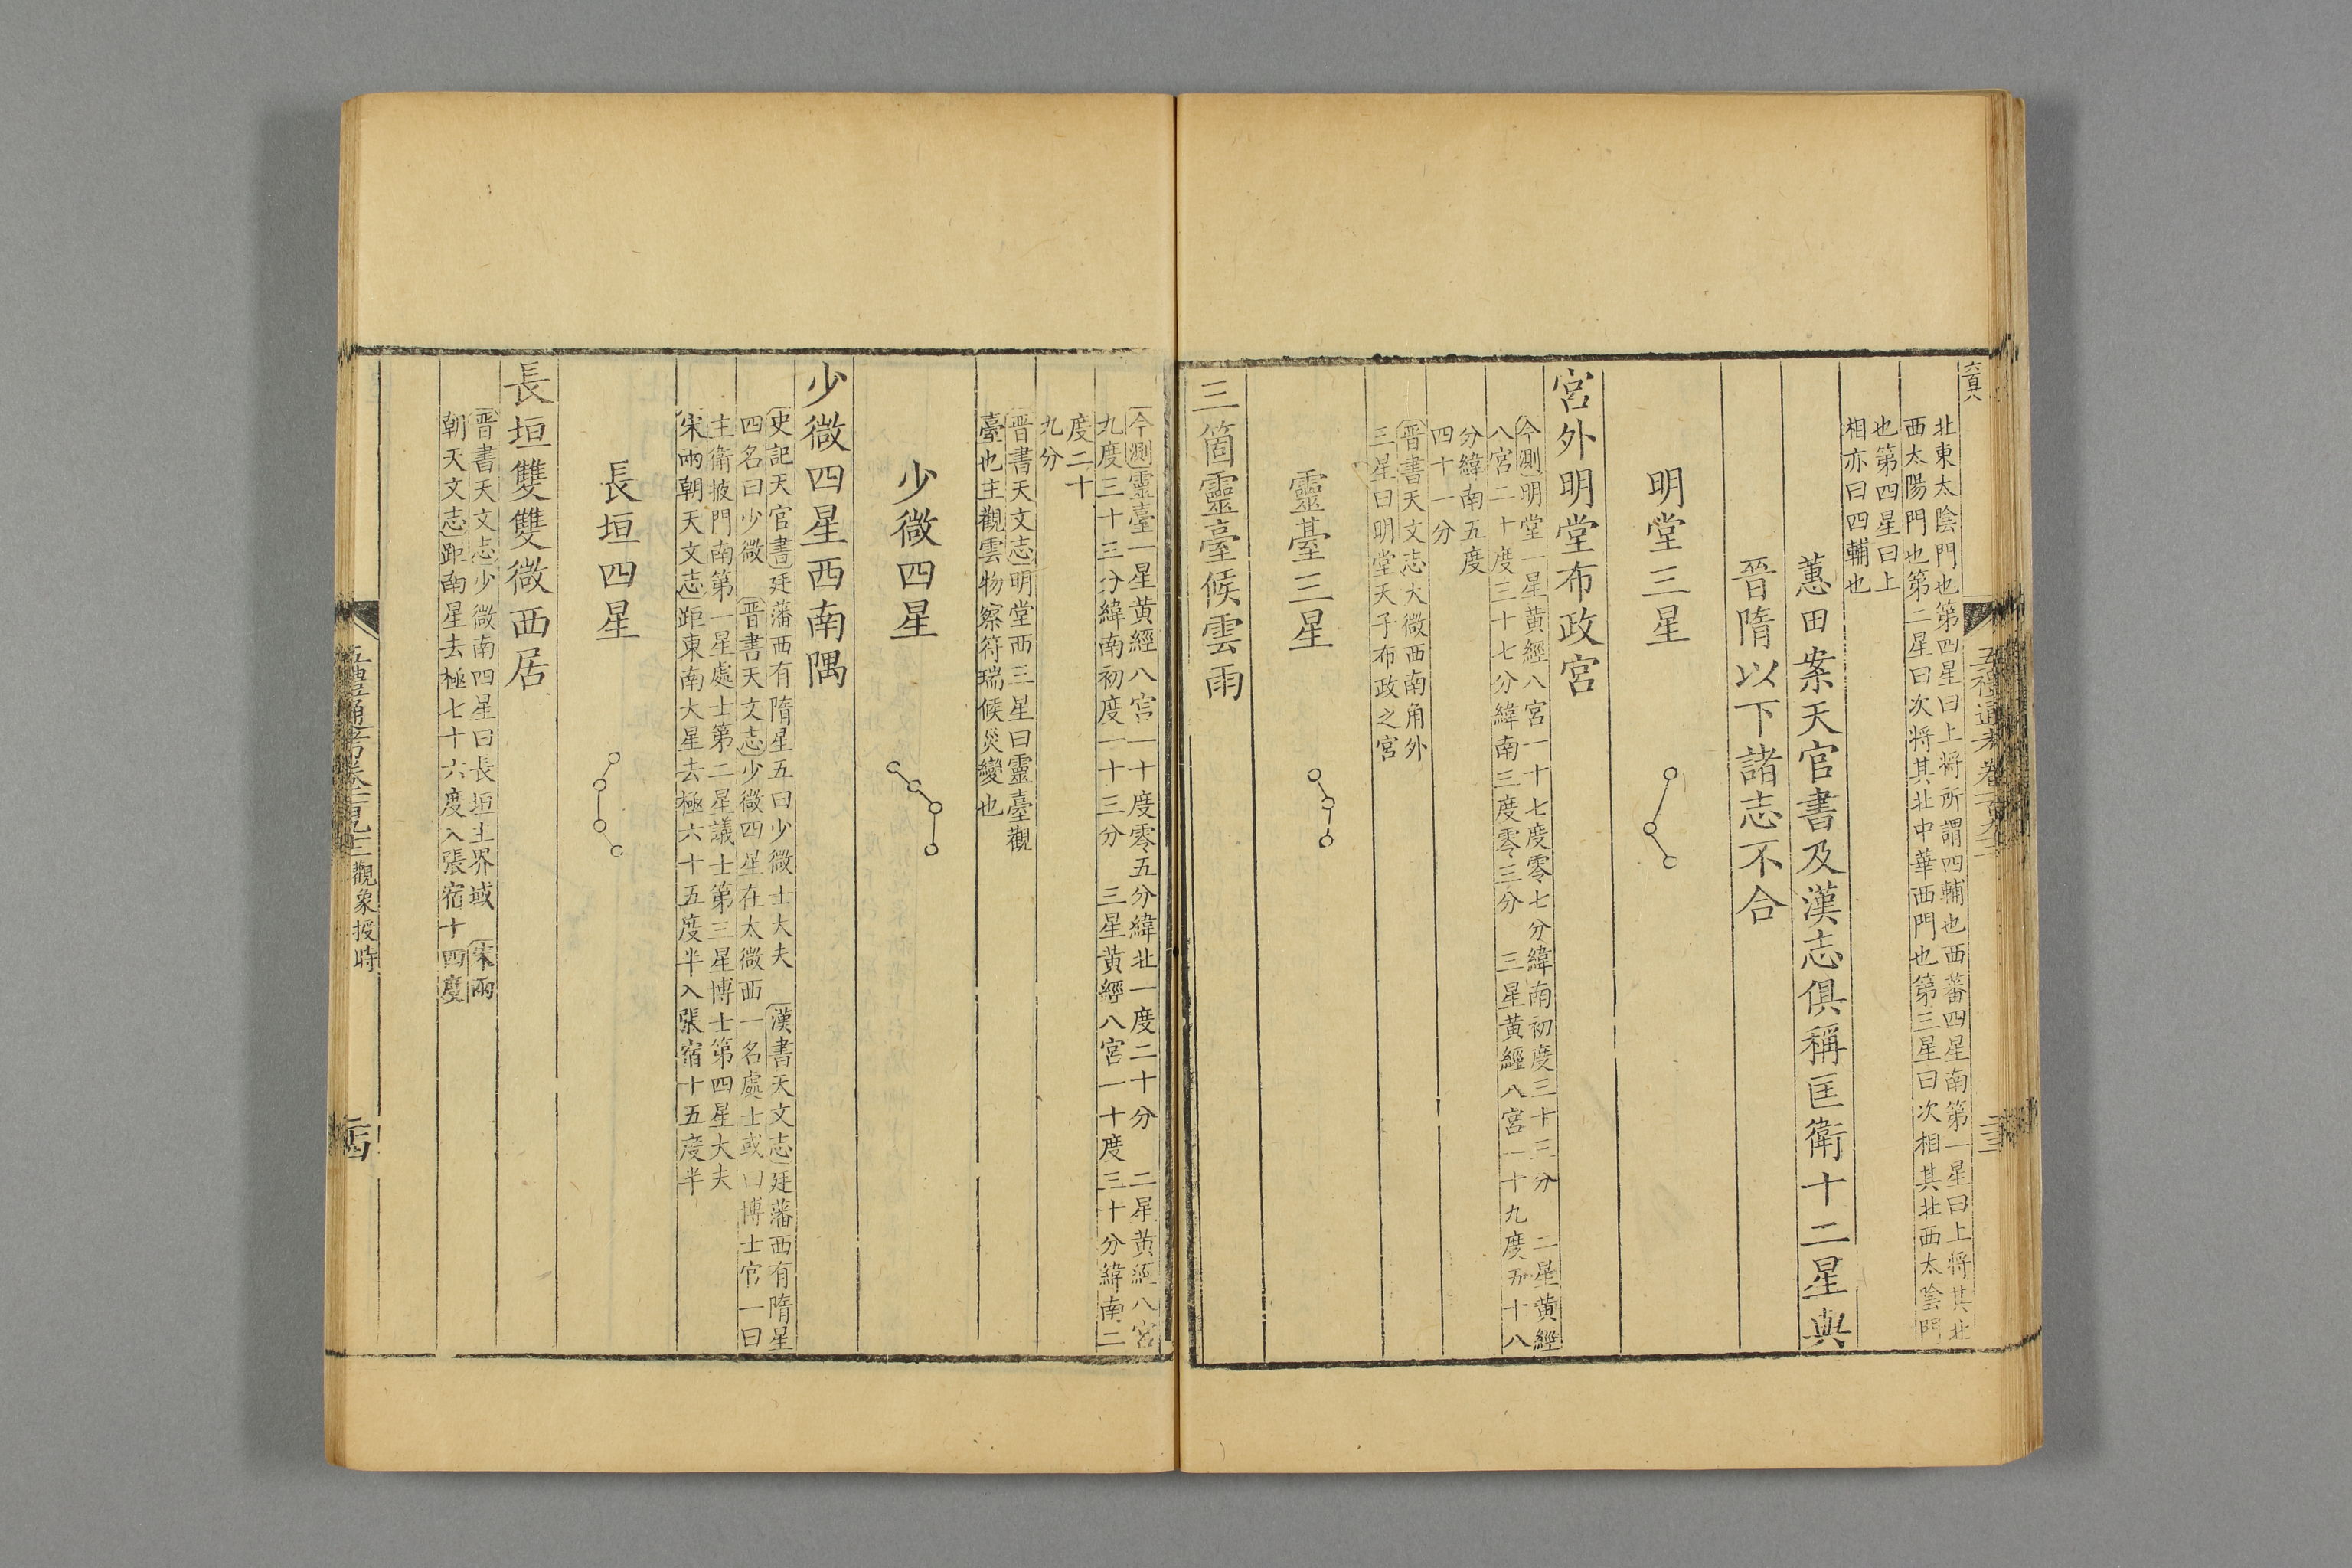 六百八
北東太陰門也第四星曰上將所謂四輔也西蕃四星南第一星曰上將其北
西太陽門也第二星曰次將其北中華西門也第三星曰次相其北西太陰門
也第四星曰上
相亦曰四輔也
蕙田案天官書及漢志俱稱匡衛十二星與
晉隋以下諸志不合
明堂三星
宮外明堂布政宮
今測明堂一星黃經八宮一十七度零七分緯南初度三十三分　二星黃經
八宮二十度三十七分緯南三度零三分　三星黃經八宮一十九度五十八
分緯南五度
四十一分
晉書天文志太微西南角外
三星曰明堂天子布政之宮
靈臺三星
三箇靈臺候雲雨
五禮通考卷一百九十二
二十三
今測靈臺一星黃經八宮一十度零五分緯北一度二十分　二星黃經八宮
九度三十三分緯南初度一十三分　三星黃經八宮一十度三十分緯南二
度二十
九分
晉書天文志明堂西三星曰靈臺觀
臺也主觀雲物察符瑞候災變也
少微四星
少微四星西南隅
史記天官書廷藩西有隋星五曰少微士大夫　漢書天文志廷藩西有隋星
四名曰少微　晉書天文志少微四星在太微西一名處士或曰博士官一曰
主衛掖門南第一星處士第二星議士第三星博士第四星大夫
宋兩朝天文志距東南大星去極六十五度半入張宿十五度半
長垣四星
長垣雙雙微西居
晉書天文志少微南四星曰長垣主界域　宋兩
朝天文志距南星去極七十六度入張宿十四度
五禮通考卷一百九十二　觀象授時
二十四